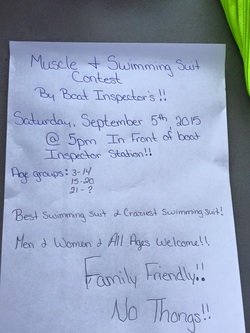 Muscle & Swimming Suit
Contest
By Boat Inspector's!!
Saturday, September 5th, 2015
@ 5pm In Front of boat
Inspector Station!!
Age groups: 3-14
15-20
21-?
Best Swimming Suit & Craziest Swimming Suit!
Men & Women & All Ages Welcome!!
Family Friendly!!
No Thongs!!